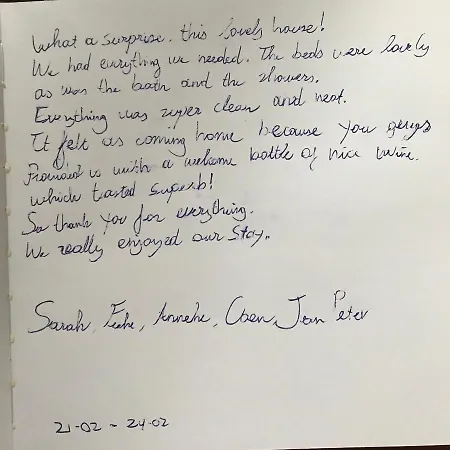 What a surprise. this lovely house!
We had everything we needed. The beds were lovely
as was the bath and the showers.
Everything was super clean and neat.
It felt as coming home because you guys
Provided us with a welcome bottle of nice wine.
which tasted superb!
So thank you for everything.
We really enjoyed our stay.
Sarah, Anneke, Coen, Jan Peter
21-02 - 24-02